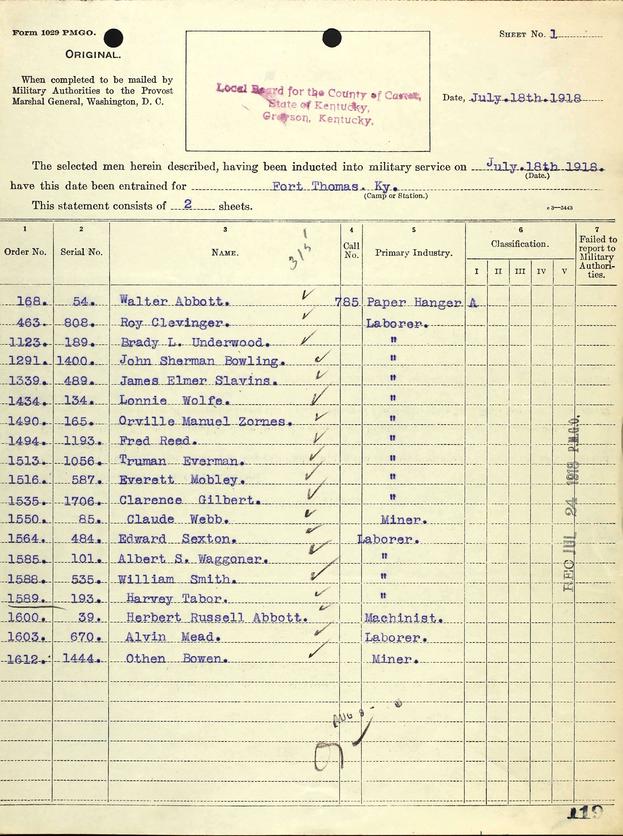 Form 1029 PMGO.
ORIGINAL.
When completed to be mailed by
Military Authorities to the Provost
Marshal General, Washington, D. C.
Local Board for the County of Carter,
State of Kentucky,
Grayson, Kentucky.
SHEET No. 1
Date, July.18th.1918
The selected men herein described, having been inducted into military service on July.18th 1918.
(Date.)
have this date been entrained for Fort Thomas. Ky.
(Camp or Station.)
This statement consists of 2 sheets.
c3—5443
1 2 3 4 5 6 7
Order No. Serial No. NAME. Call No. Primary Industry. Classification. Failed to report to Military Authorities.
I II III IV V
168. 54. Walter Abbott. 785 Paper Hanger A
463. 808. Roy Clevinger. Laborer.
1123. 189. Brady L. Underwood. "
1291. 1400. John Sherman Bowling. "
1339. 489. James Elmer Slavins. "
1434. 134. Lonnie Wolfe. "
1490. 165. Orville Manuel Zornes. "
1494. 1193. Fred Reed. "
1513. 1056. Truman Everman. "
1516. 587. Everett Mobley. "
1535. 1706. Clarence Gilbert. "
1550. 85. Claude Webb. Miner.
1564. 484. Edward Sexton. Laborer.
1585. 101. Albert S. Waggoner. "
1588. 535. William Smith. "
1589. 193. Harvey Tabor. "
1600. 39. Herbert Russell Abbott. Machinist.
1603. 670. Alvin Mead. Laborer.
1612. 1444. Othen Bowen. Miner.
REC JUL 24 1918 P.M.G.O.
AUG 8
119